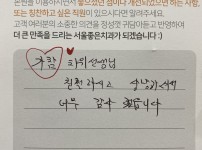 본원을 이용하시면서 좋았던 점이나 개선되었으면 하는 사항,
또는 칭찬하고 싶은 직원이 있으시다면 알려주세요.
고객 여러분의 소중한 의견을 정성껏 귀담아듣고 반영하여
더 큰 만족을 드리는 서울좋은치과가 되겠습니다 :)
선생님
친절하시고
너무 감사합니다